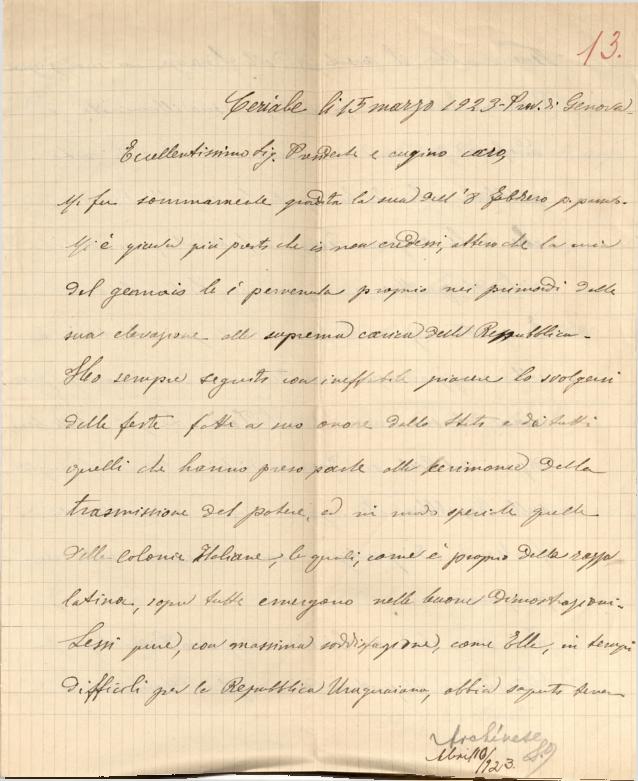 13.
Ceriale li 15 marzo 1923 - Prov. di Genova -
Eccellentissimo Sig. Presidente e cugino caro,
Mi fu sommamente gradita la sua dell' 8 febbrero p. passato -
Mi è giunta più presto che io non credessi, atteso che la mia
del gennaio le è pervenuta proprio nei primordi della
sua elevazione alla suprema carica della Repubblica -
Ho sempre seguito con ineffabile piacere lo svolgersi
delle feste fatte a suo onore dallo Stato e da tutti
quelli che hanno preso parte alla cerimonia della
trasmissione del potere, ed in modo speciale quelle
delle colonie Italiane, le quali, come è proprio della razza
latina, sopra tutte emergono nelle buone dimostrazioni -
Lessi pure, con massima soddisfazione, come Ella, in tempi
difficili per la Repubblica Uruguaiana, abbia saputo tener
Archívese
Abril 10/923.